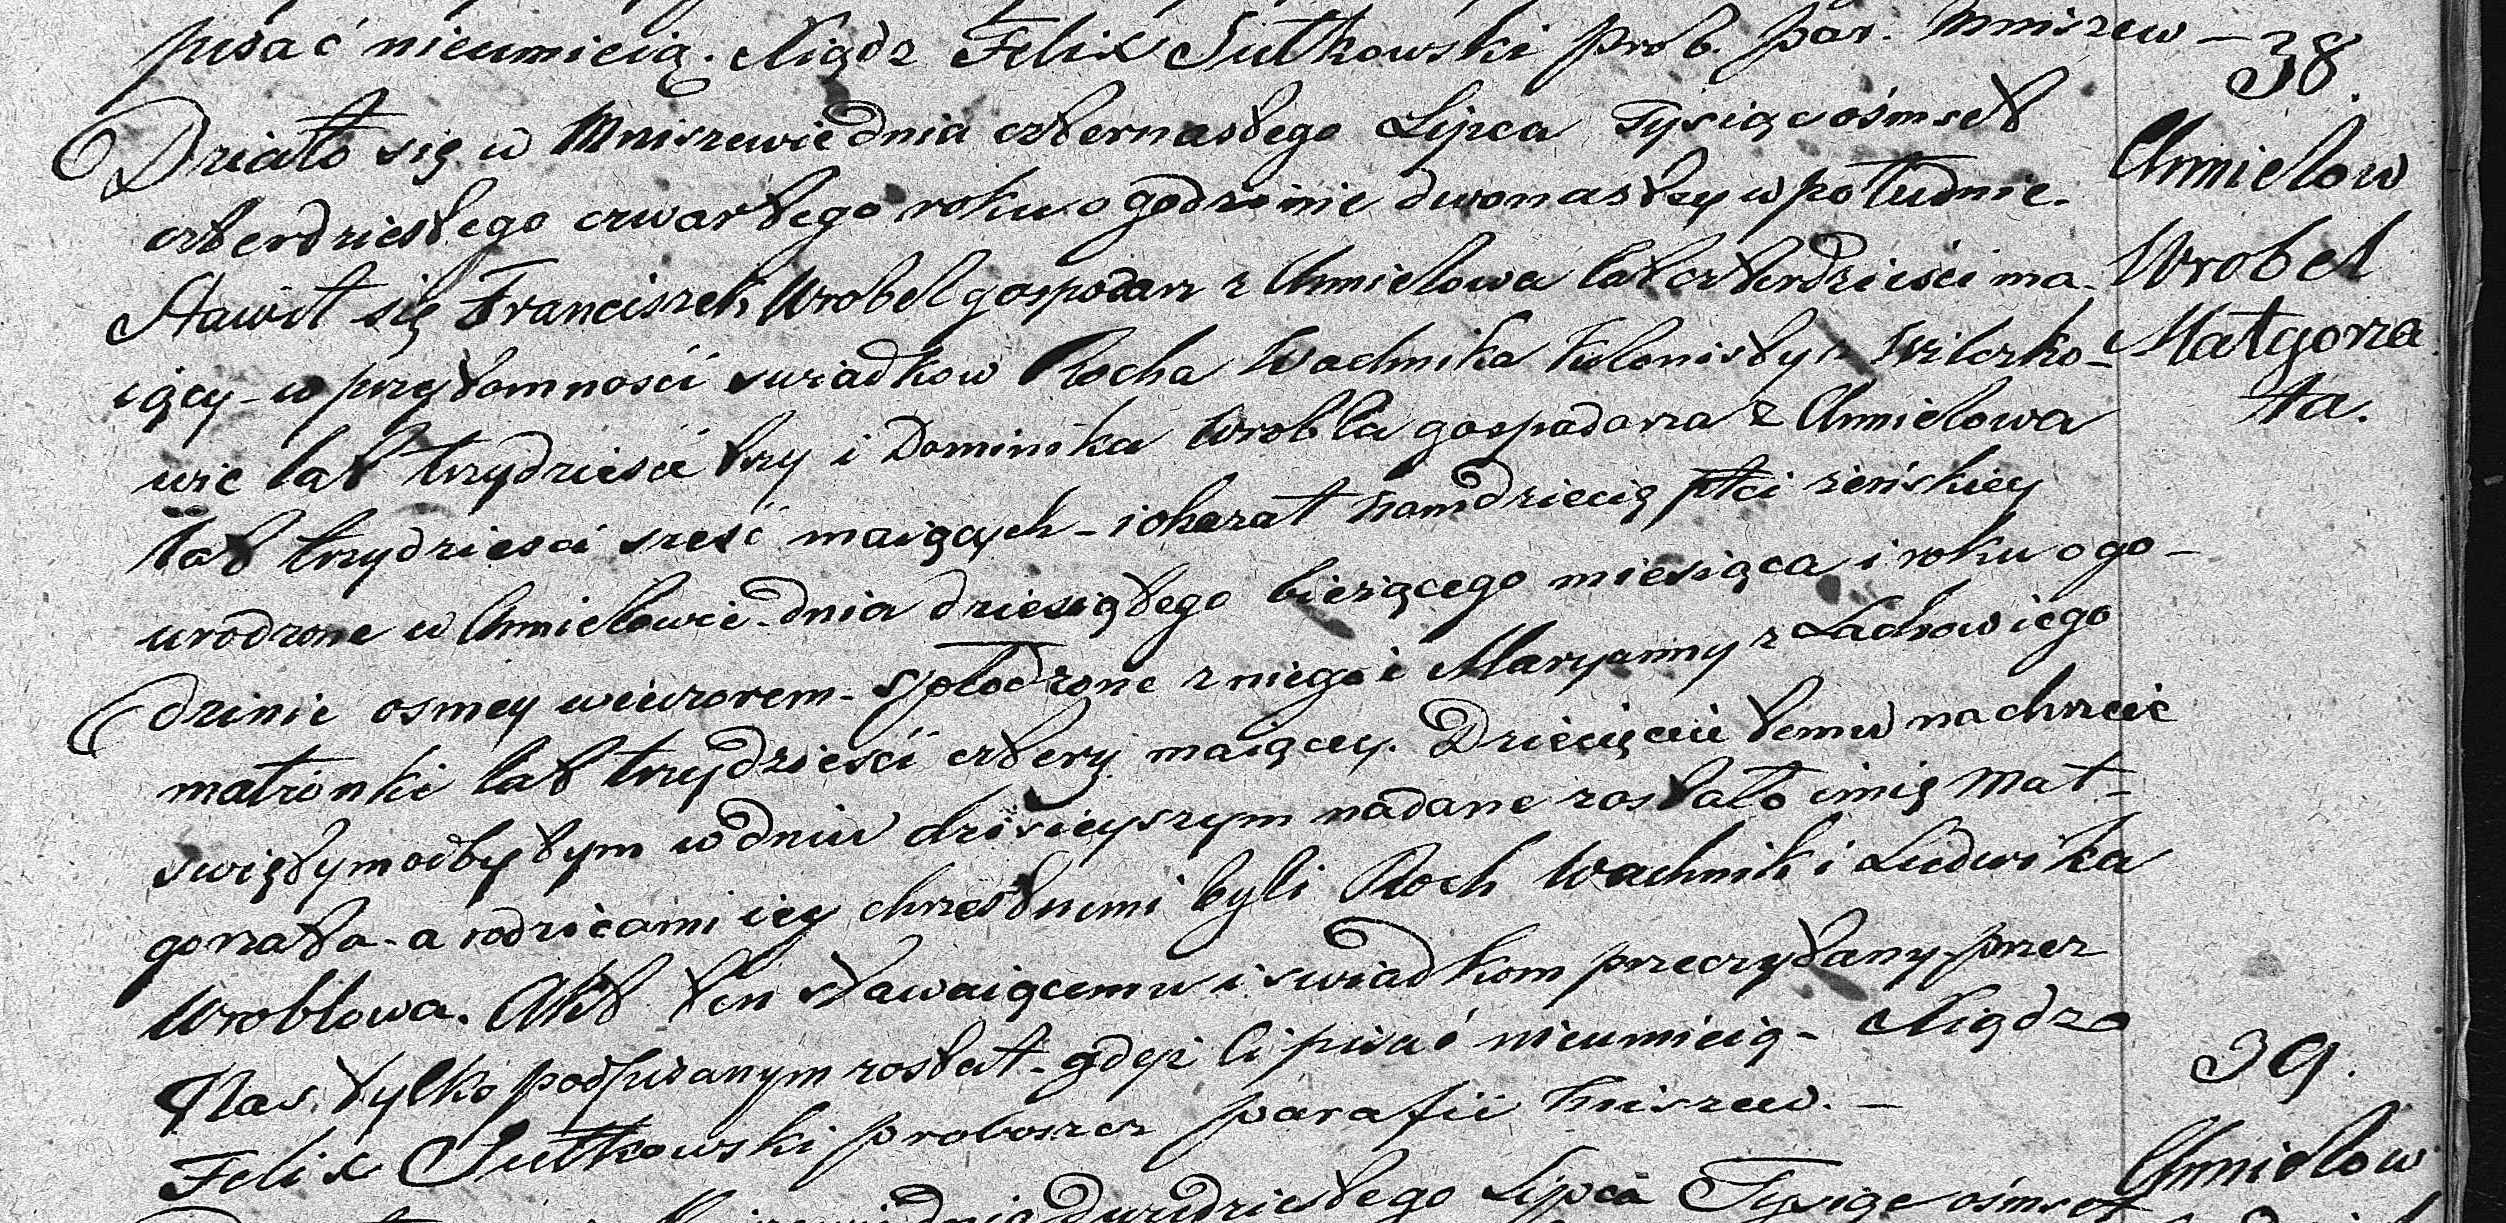 pisać nieumieią. Xiądz Felix Sutkowski prob. par. Mniszew —
38.
Działo się w Mniszewie dnia czternastego Lipca Tysiąc ośmset
Chmielow
czterdziestego czwartego roku o godzinie dwonastey w południe.
Stawił się Franciszek Wrobel gospodarz z Chmielowa lat czterdzieści ma-
Wrobel
iący - w przytomności swiadkow Rocha Wachnika kolonisty z Wilczko-
Małgorza
ta.
wic lat trzydzieści trzy i Dominika Wrobla gospodarza z Chmielowa
lat trzydzieści sześć maiących - i okazał nam dziecię płci żeńskiey
urodzone w Chmielowie dnia dziesiątego bieżącego miesiąca i roku o go-
dzinie osmey wieczorem - spłodzone z niego i Maryanny z
małżonki lat trzydzieści cztery maiącey. Dziecięciu temu na chrzcie
swiętym odbytym w dniu dzisieyszym nadane zostało imię Mał-
gorzata - a rodzicami iey chrzestnemi byli Roch Wachnik i Ludwika
Wroblowa. Akt ten stawaiącemu i swiadkom przeczytany przez
Nas tylko podpisanym został - gdyż ci pisać nieumieią - Xiądz
Felix Sutkowski proboszcz parafii Mniszew. —
39.
Chmielow
dnia dwudziestego Lipca Tysiąc ośmset